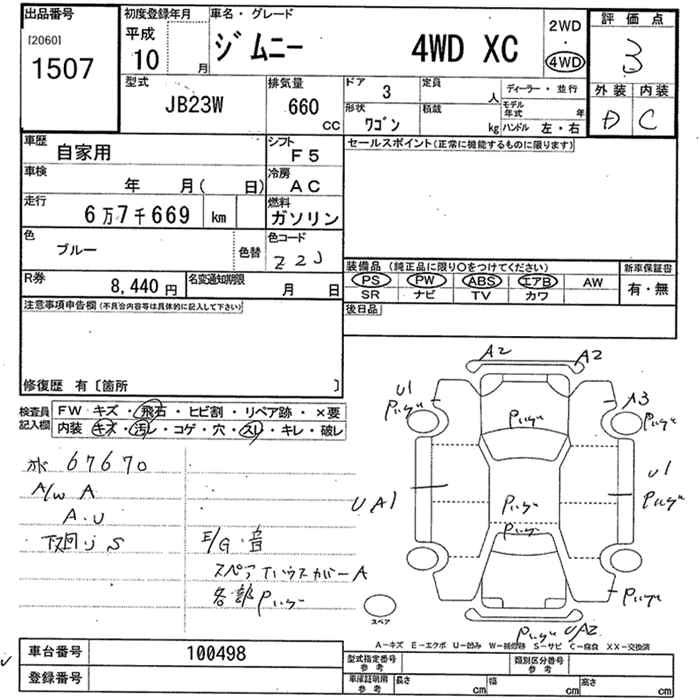 出品番号
[2060]
1507
初度登録年月
平成
10 月
車名・グレード
ジムニー 4WD XC
2WD
・
4WD
評価点
3
外装 内装
D C
型式
JB23W
排気量
660
CC
ドア 3
形状 ワゴン
定員 人
積載 kg
ディーラー・並行
モデル年式 年
ハンドル 左・右
車歴
自家用
シフト
F5
セールスポイント(正常に機能するものに限ります)
車検
年 月( 日)
冷房
AC
走行
6万7千669 km
燃料
ガソリン
色
ブルー
色替
色コード
Z2J
R券
8,440円
名変通知期限
月 日
装備品(純正品に限り○をつけてください)
新車保証書
PS PW ABS エアB AW
SR ナビ TV カワ
有・無
後日品
注意事項申告欄(不具合内容等は具体的に記入して下さい)
修復歴 有〔箇所 〕
検査員記入欄
FW キズ・飛石・ヒビ割・リペア跡・×要
内装 キズ・汚レ・コゲ・穴・スレ・キレ・破レ
67670
A/W A
A・U
下回・J S
E/G・音
スペアTハウスカバーA
各部
A2 A2
U1
A3
UA1
U1
UA2
スペア
A-キズ E-エクボ U-凹み W-補修跡 S-サビ C-腐食 XX-交換済
車台番号
100498
登録番号
型式指定番号
参考
類別区分番号
参考
車庫証明用
参考
長さ cm
幅 cm
高さ cm